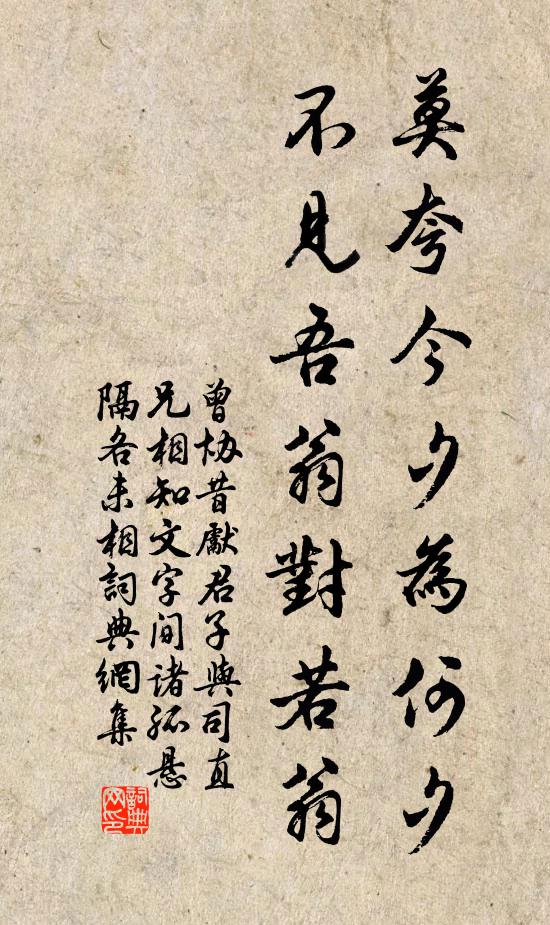 莫夸今夕為何夕
不見吾翁對若翁
曾協昔獻君子與司直
兄相知文字間諸孤懸
隔各未相詞典網集
詞典网印